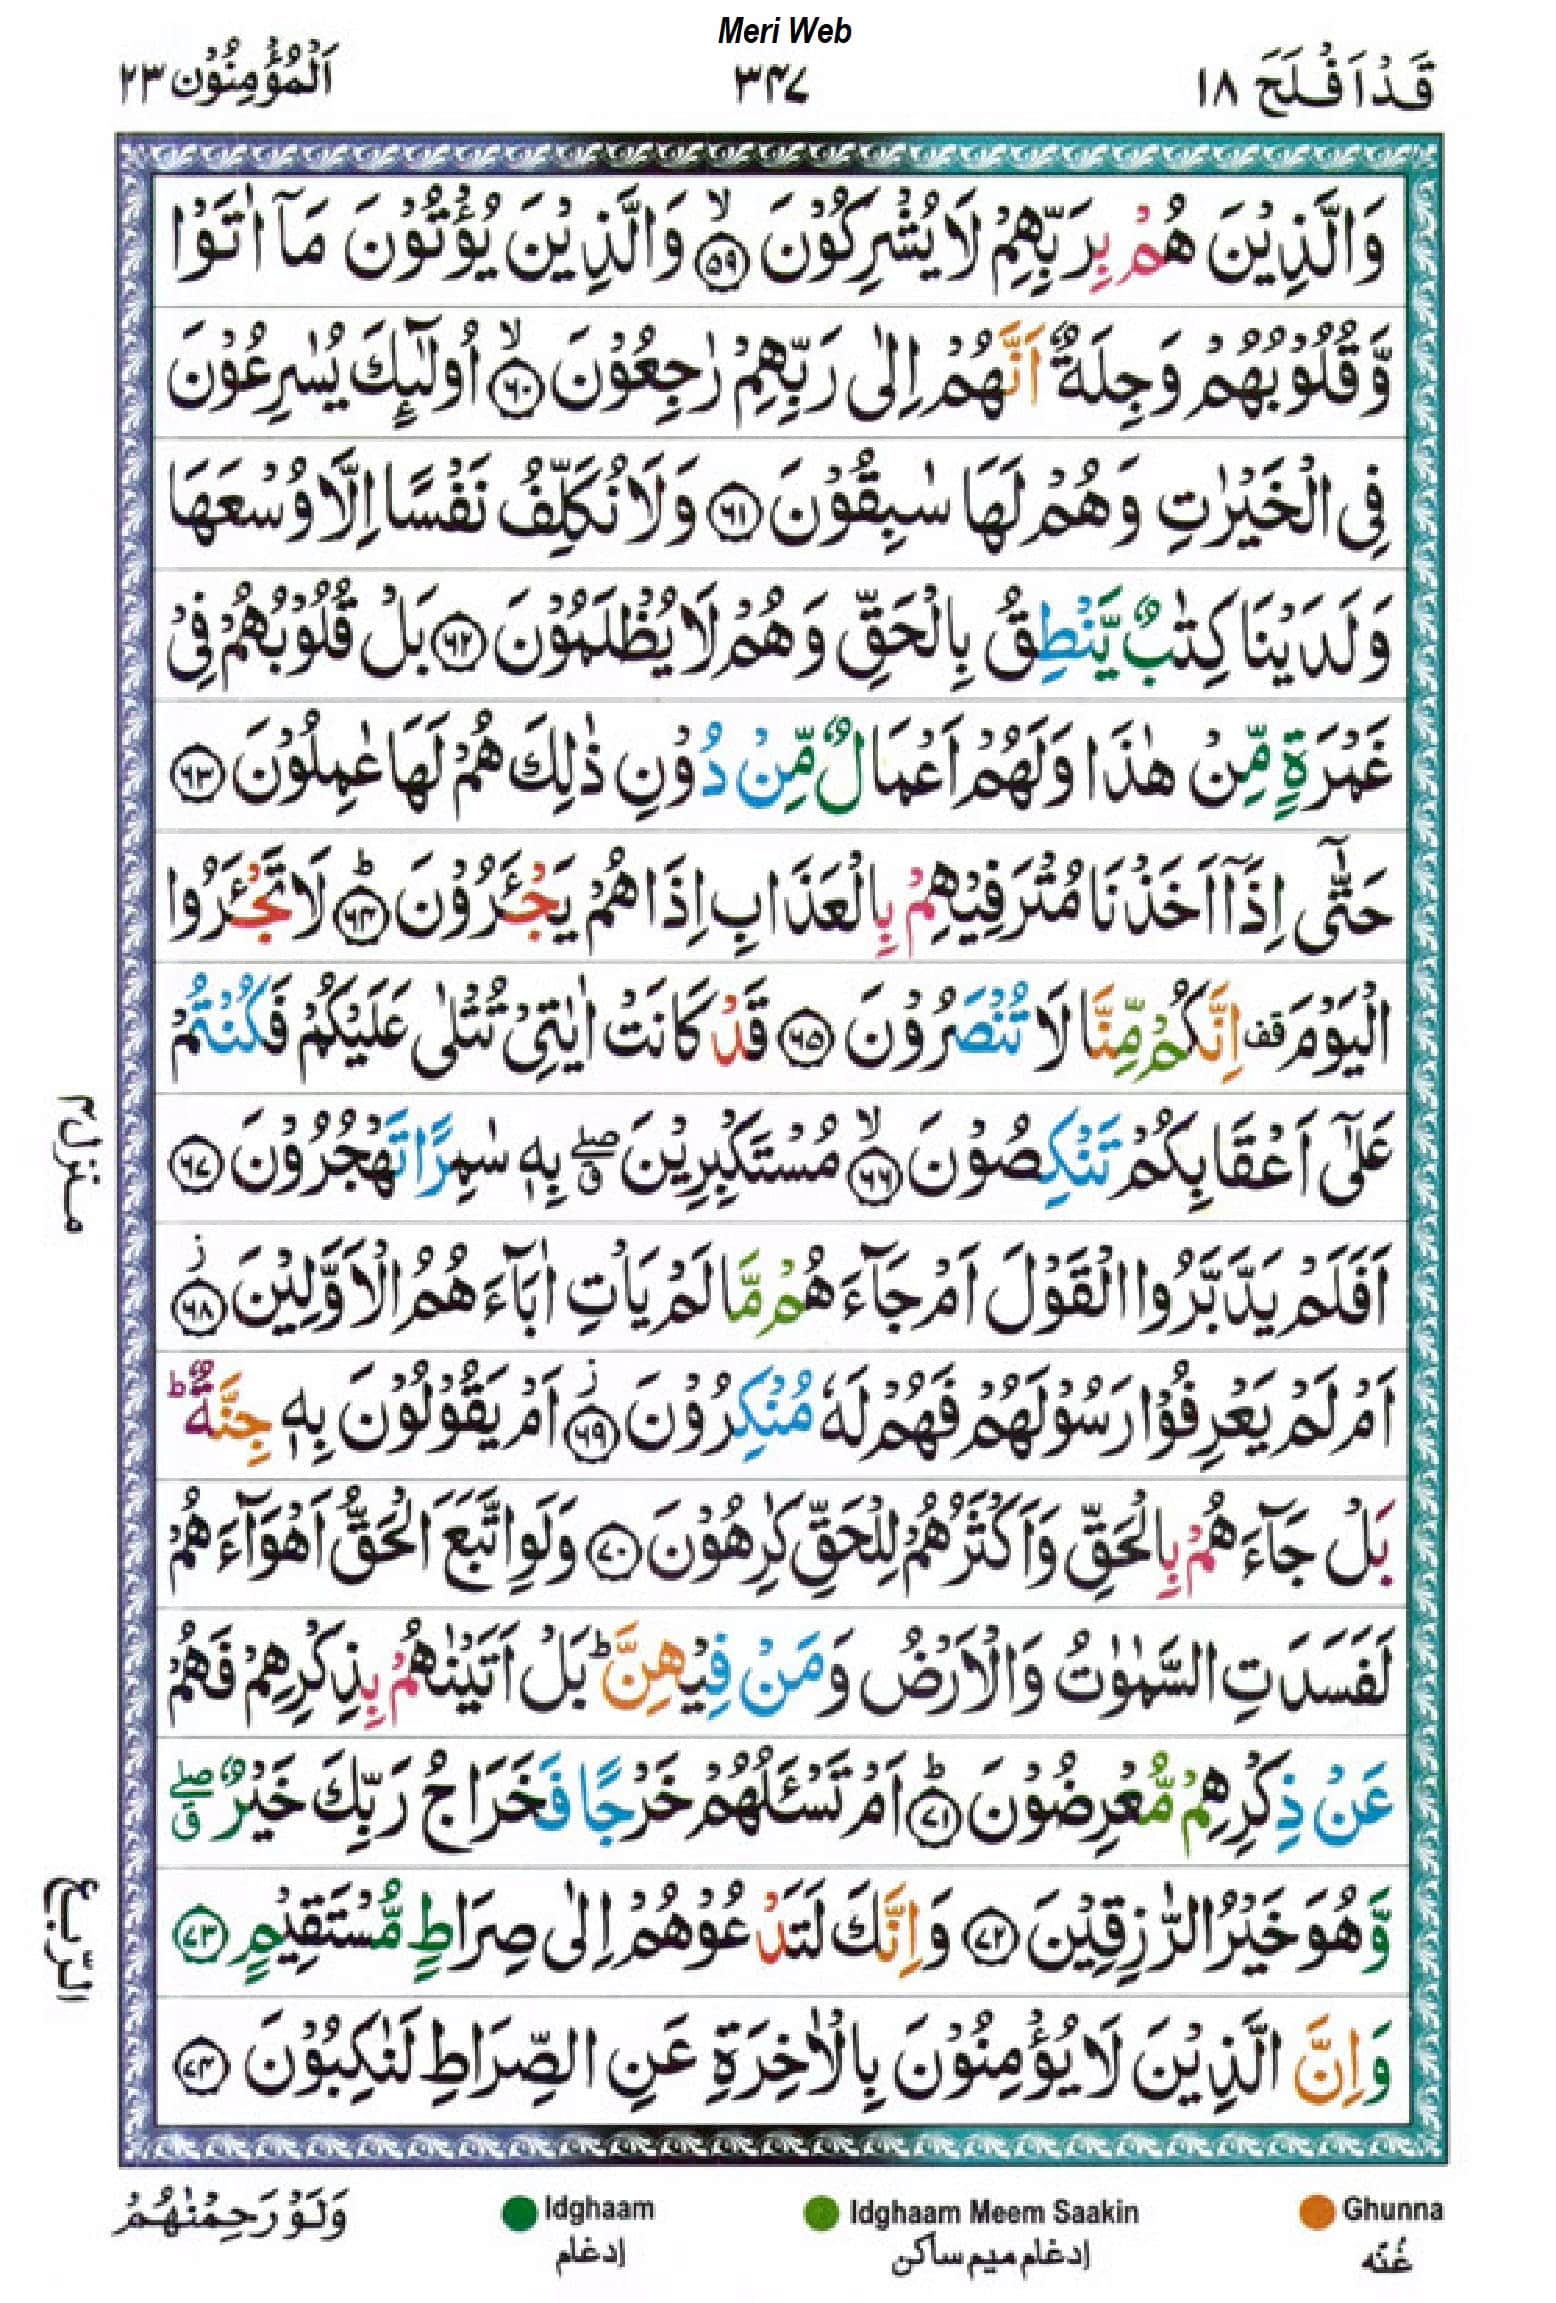 Meri Web
قَدْ اَفْلَحَ ١٨
٣٤٧
اَلْمُؤْمِنُوْن ٢٣
وَالَّذِيْنَ هُمْ بِرَبِّهِمْ لَا يُشْرِكُوْنَ ۙ﴿٥٩﴾ وَالَّذِيْنَ يُؤْتُوْنَ مَاۤ اٰتَوْا
وَّقُلُوْبُهُمْ وَجِلَةٌ اَنَّهُمْ اِلٰى رَبِّهِمْ رٰجِعُوْنَ ۙ﴿٦٠﴾ اُولٰٓئِكَ يُسٰرِعُوْنَ
فِى الْخَيْرٰتِ وَهُمْ لَهَا سٰبِقُوْنَ ﴿٦١﴾ وَلَا نُكَلِّفُ نَفْسًا اِلَّا وُسْعَهَا
وَلَدَيْنَا كِتٰبٌ يَّنْطِقُ بِالْحَقِّ وَهُمْ لَا يُظْلَمُوْنَ ﴿٦٢﴾ بَلْ قُلُوْبُهُمْ فِىْ
غَمْرَةٍ مِّنْ هٰذَا وَلَهُمْ اَعْمَالٌ مِّنْ دُوْنِ ذٰلِكَ هُمْ لَهَا عٰمِلُوْنَ ﴿٦٣﴾
حَتّٰۤى اِذَاۤ اَخَذْنَا مُتْرَفِيْهِمْ بِالْعَذَابِ اِذَا هُمْ يَجْـَٔرُوْنَ ؕ﴿٦٤﴾ لَا تَجْـَٔرُوا
الْيَوْمَ قف اِنَّكُمْ مِّنَّا لَا تُنْصَرُوْنَ ﴿٦٥﴾ قَدْ كَانَتْ اٰيٰتِىْ تُتْلٰى عَلَيْكُمْ فَكُنْتُمْ
عَلٰۤى اَعْقَابِكُمْ تَنْكِصُوْنَ ۙ﴿٦٦﴾ مُسْتَكْبِرِيْنَ ۖ ق بِهٖ سٰمِرًا تَهْجُرُوْنَ ﴿٦٧﴾
اَفَلَمْ يَدَّبَّرُوا الْقَوْلَ اَمْ جَآءَهُمْ مَّا لَمْ يَاْتِ اٰبَآءَهُمُ الْاَوَّلِيْنَ ز﴿٦٨﴾
اَمْ لَمْ يَعْرِفُوْا رَسُوْلَهُمْ فَهُمْ لَهٗ مُنْكِرُوْنَ ز﴿٦٩﴾ اَمْ يَقُوْلُوْنَ بِهٖ جِنَّةٌ ؕ
بَلْ جَآءَهُمْ بِالْحَقِّ وَاَكْثَرُهُمْ لِلْحَقِّ كٰرِهُوْنَ ﴿٧٠﴾ وَلَوِ اتَّبَعَ الْحَقُّ اَهْوَآءَهُمْ
لَفَسَدَتِ السَّمٰوٰتُ وَالْاَرْضُ وَمَنْ فِيْهِنَّ ؕ بَلْ اَتَيْنٰهُمْ بِذِكْرِهِمْ فَهُمْ
عَنْ ذِكْرِهِمْ مُّعْرِضُوْنَ ؕ﴿٧١﴾ اَمْ تَسْـَٔلُهُمْ خَرْجًا فَخَرَاجُ رَبِّكَ خَيْرٌ ۖ ق
وَّهُوَ خَيْرُ الرّٰزِقِيْنَ ﴿٧٢﴾ وَاِنَّكَ لَتَدْعُوْهُمْ اِلٰى صِرَاطٍ مُّسْتَقِيْمٍ ﴿٧٣﴾
وَاِنَّ الَّذِيْنَ لَا يُؤْمِنُوْنَ بِالْاٰخِرَةِ عَنِ الصِّرَاطِ لَنٰكِبُوْنَ ﴿٧٤﴾
منزل ٤
الرّبع
Ghunna
غُنّه
Idghaam Meem Saakin
إدغام ميم ساكن
Idghaam
إدغام
وَلَوْ رَحِمْنٰهُمْ